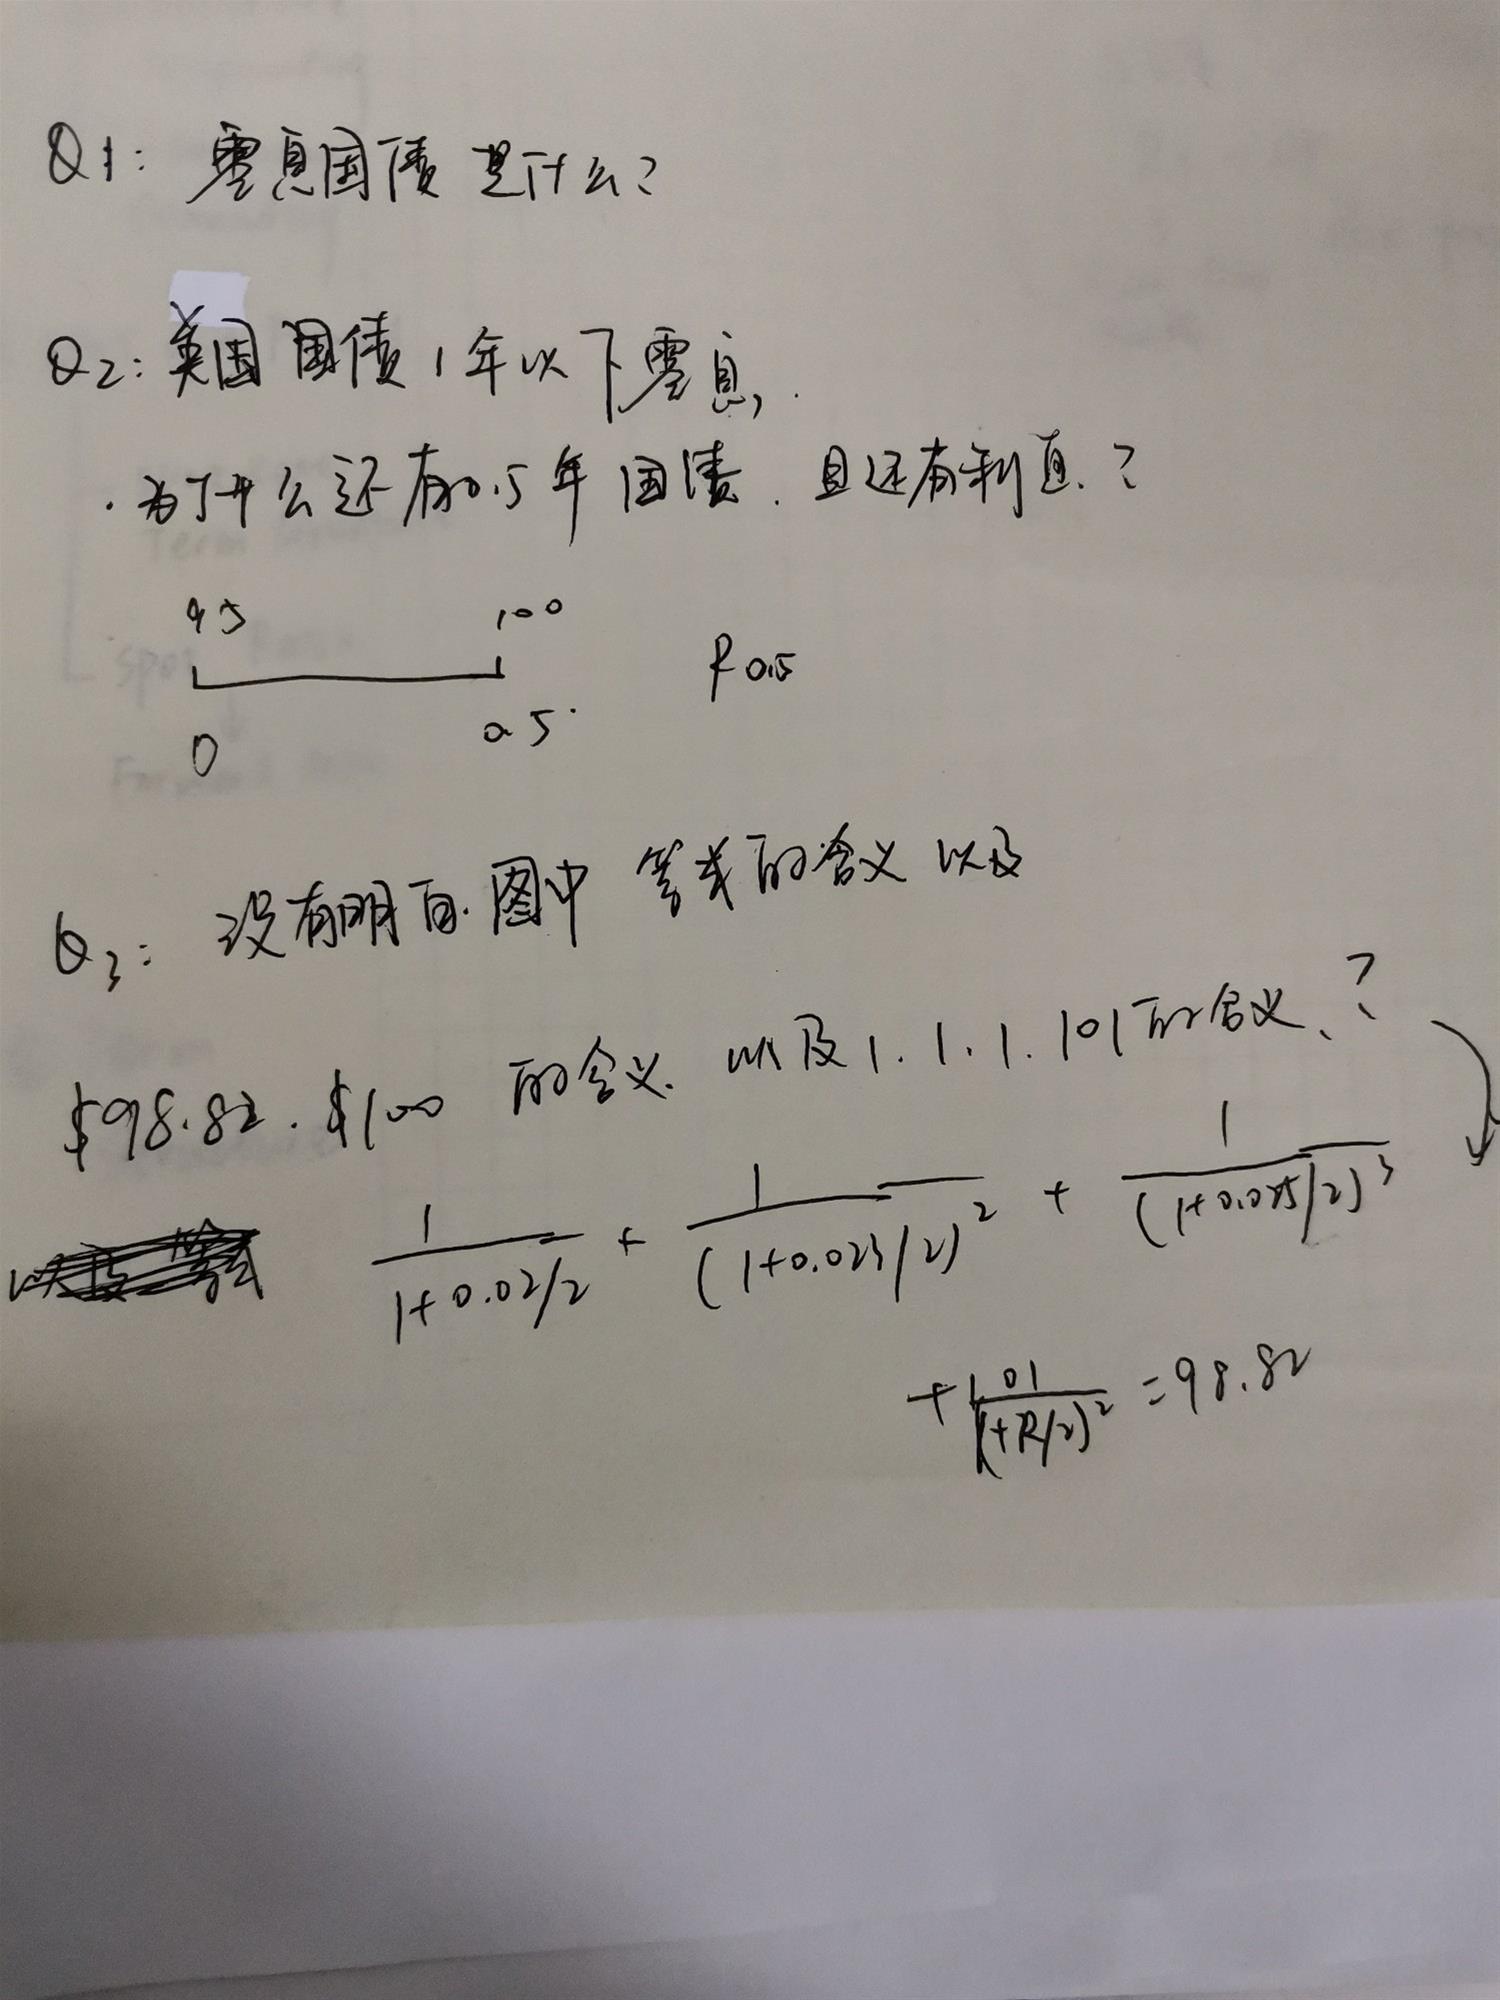 Q1: 零息国债是什么?
Q2: 美国国债1年以下零息,
为什么还有0.5年国债. 且还有利息?
95 100
R0.5
0 0.5
Q3: 没有明白.图中等式的含义以及
$98.82. $100 的含义. 以及1.1.1.101的含义、?
1/(1+0.02/2) + 1/(1+0.023/2)^2 + 1/(1+0.025/2)^3
+ 101/(1+R/2)^2 = 98.82